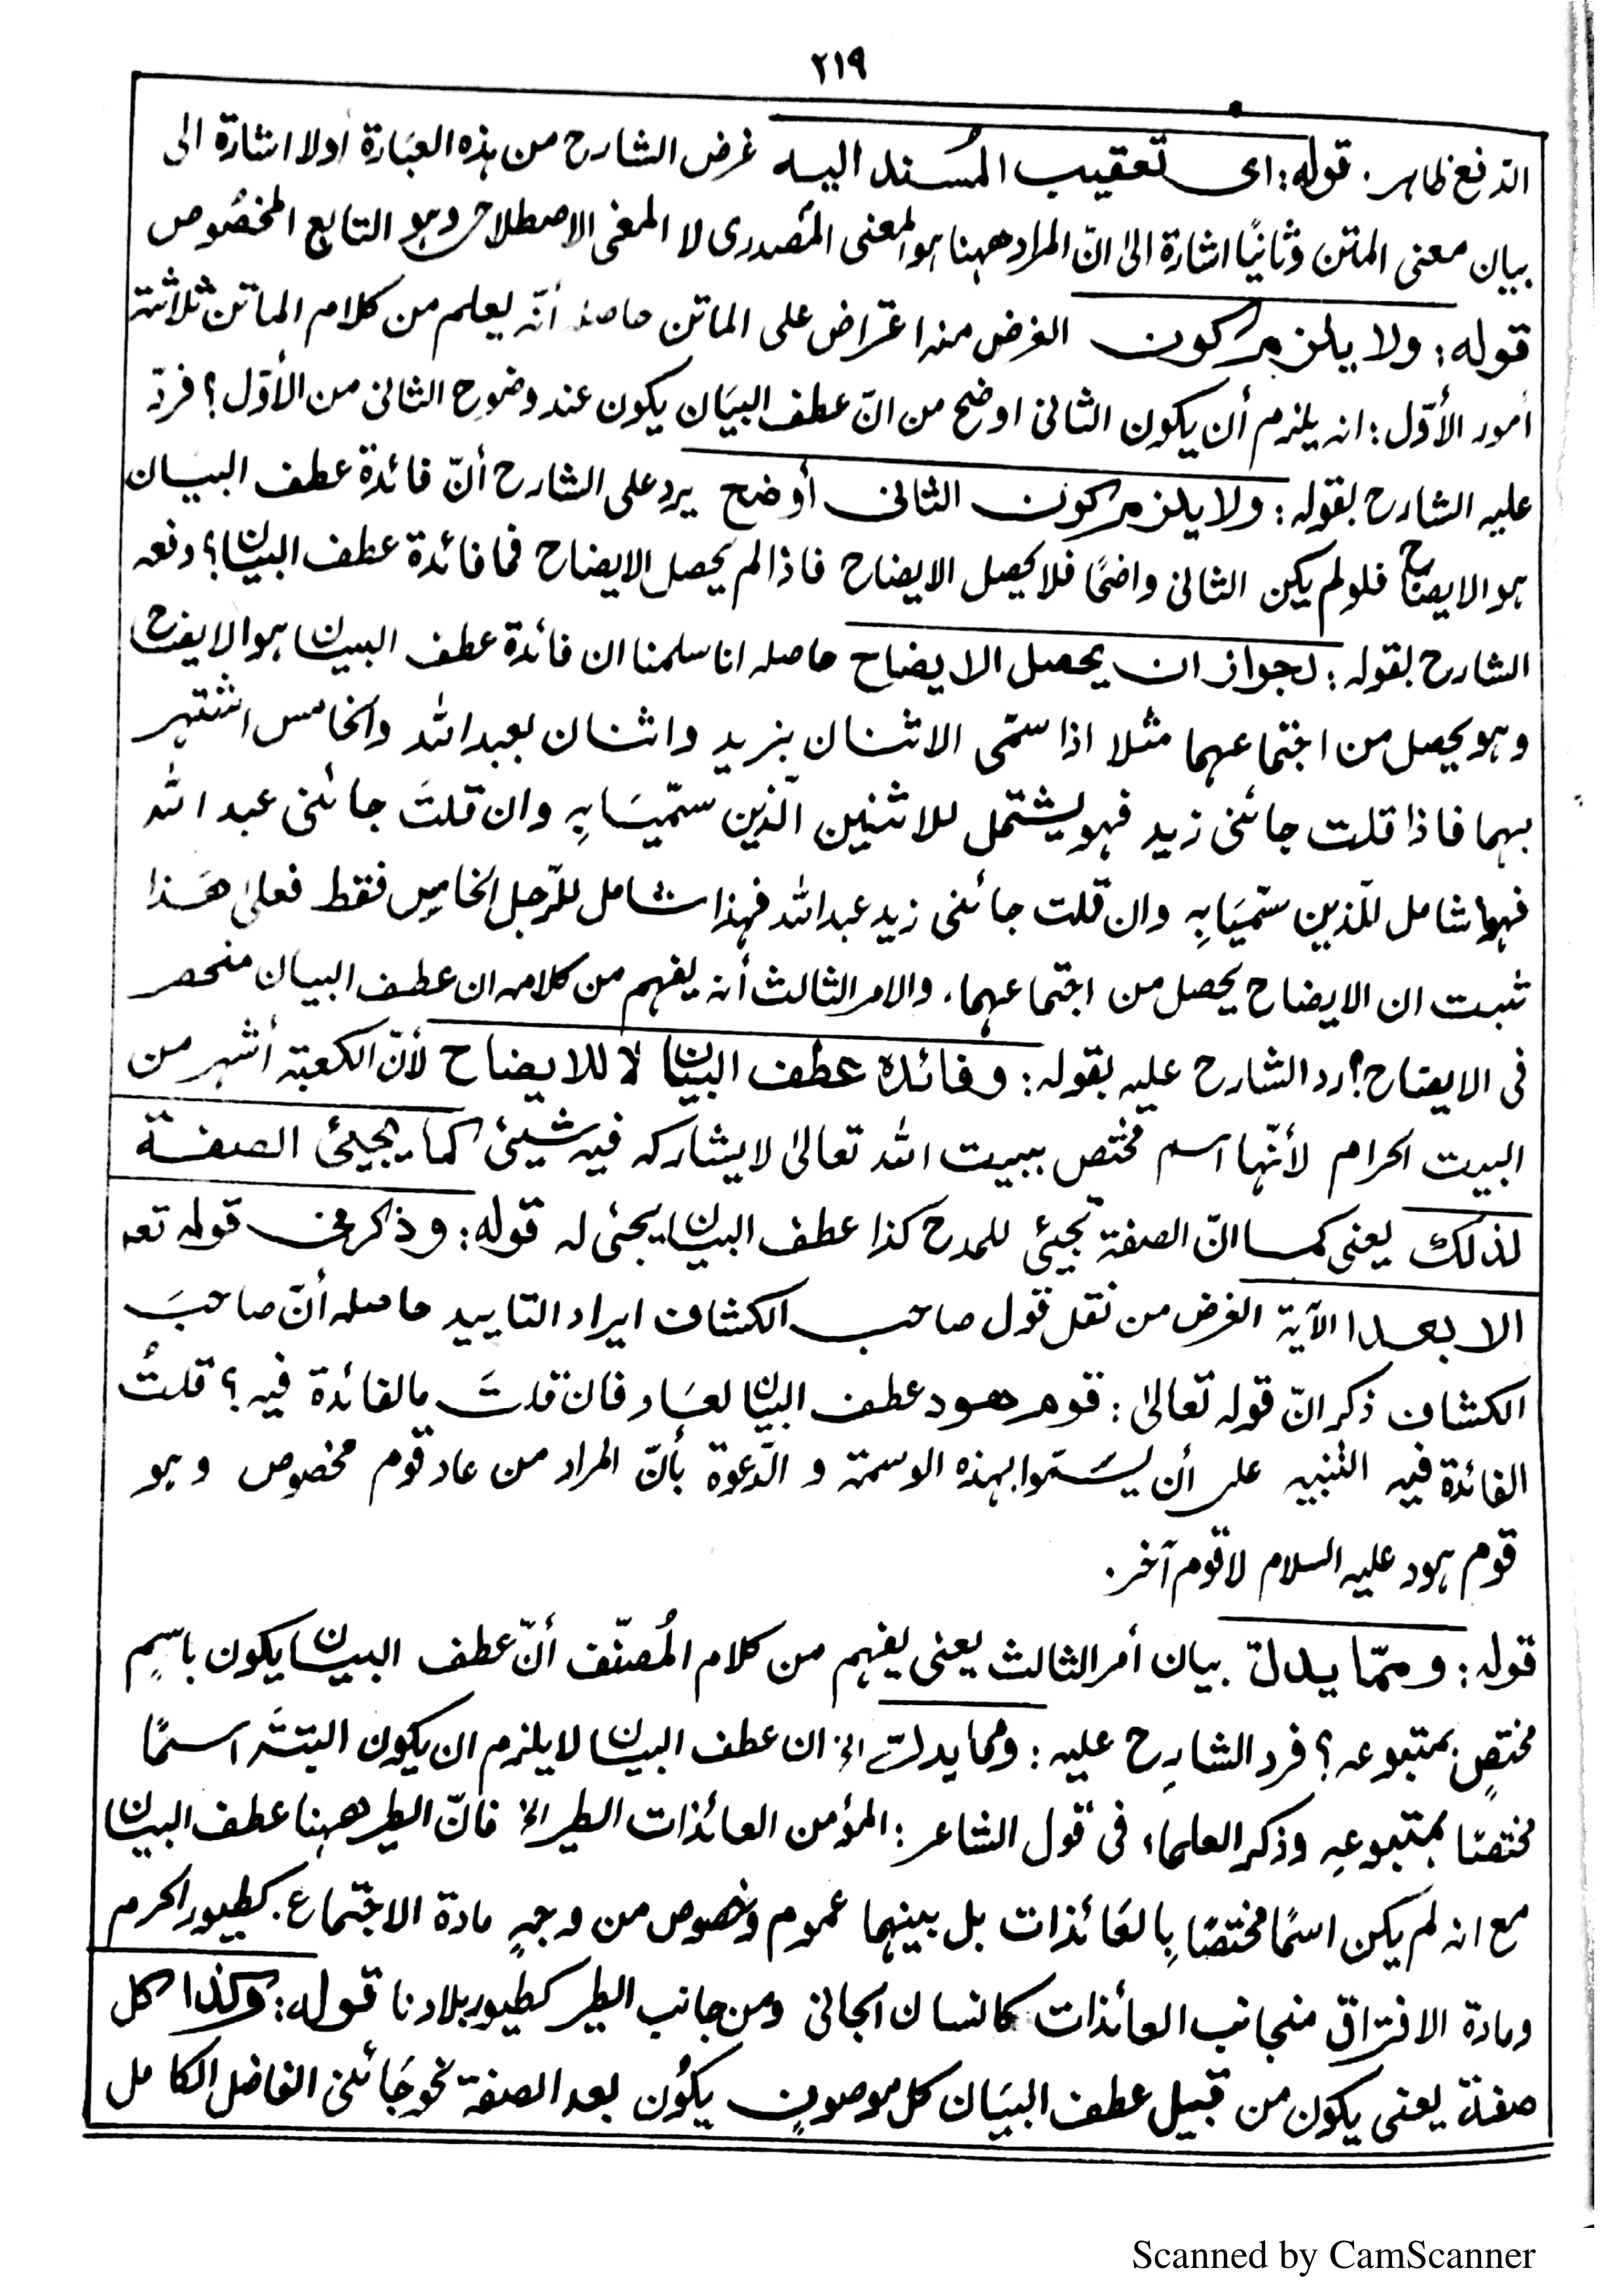 ٢١٩
الدفع ظاهر. قوله: اى تعقيب المُسند اليه غرض الشارح من هذه العبَارة أولا اشارة الى
بيان معنى المتن وثانيًا اشارة الى انّ المراد ههنا هو المعنى المصدرى لا المعنى الاصطلاحى وهو التابع المخصُوص
قوله: ولا يلزم كون الغرض منه اعتراض على الماتن حاصله أنّه يعلم من كلام الماتن ثلاثة
أمور الأوّل: انه يلزم أن يكون الثانى اوضح من انّ عطف البيَان يكون عند وضوح الثانى من الأوّل؟ فردّ
عليه الشارح بقوله: ولا يلزم كون الثانى أوضح يرد على الشارح أنّ فائدة عطف البيَان
هو الايضاح فلو لم يكن الثانى واضحًا فلا يحصل الايضاح فاذا لم يحصل الايضاح فما فائدة عطف البيان؟ دفعه
الشارح بقوله: لجواز ان يحصل الايضاح حاصله انا سلمنا ان فائدة عطف البيان هو الايضاح
وهو يحصل من اجتماعهما مثلا اذا سمّى الاثنان بزيد واثنان بعبد الله والخامس اشتهر
بهما فاذا قلت جائنى زيد فهو يشتمل للاثنين الّذين سمّيَا به وان قلتَ جائنى عبد الله
فهوا شامل للّذين سمّيَا بِه وان قلت جائنى زيد عبد الله فهذا شامل للرّجل الخامِس فقط فعلىٰ هٰذا
ثبت ان الايضاح يحصل من اجتماعهما، والامر الثالث أنه يفهم من كلامه ان عطف البيان منحصر
فى الايضاح؟ رد الشارح عليه بقوله: وفائدة عطف البيان لا للايضاح لأنّ الكعبة أشهر من
البيت الحرام لأنّها اسم مختص ببيت الله تعالىٰ لا يشاركه فيه شيئ كما يجيئ الصفة
لذلك يعنى كما انّ الصفة تجيئ للمدح كذا عطف البيان يجئى له قوله: وذكر فى قوله تعه
الا بعدا الآية الغرض من نقل قول صاحب الكشاف ايراد التاييد حاصله أنّ صاحبَ
الكشاف ذكر انّ قوله تعالىٰ: قوم هود عطف البيان لعاد فان قلتَ مالفائدة فيه؟ قلتُ
الفائدة فيه التنبيه على أن يسمّوا بهذه الوسمة و الدّعوة بأنّ المراد من عاد قوم مخصوص و هو
قوم هود عليه السلام لا قوم آخر.
قوله: وممّا يدل بيان أمر الثالث يعنى يفهم من كلام المُصنّف أنّ عطف البيان يكون باسِمِ
مختصٍ بمتبوعه؟ فرد الشارِح عليه: ومما يدل الخ ان عطف البيان لا يلزم ان يكون البتّة اسمًا
مختصًا بمتبوعِهِ وذكر العلماء فى قول الشاعر: المؤمن العائذات الطير الخ فانّ الطير ههنا عطف البيان
مع انه لم يكن اسمًا مختصًا بِالعَائذات بل بينهما عموم وخصوص من وجهٍ مادة الاجتماع. كطيور الحرم
ومادة الافتراق منجانب العائذات كانسان الجانى ومن جانب الطير كطيور بلادنا قوله: وكذا كل
صفة يعنى يكون من قبيل عطف البيَان كل موصوفٍ يكُون بعد الصفة نحو جَائنى الفاضل الكامل
Scanned by CamScanner